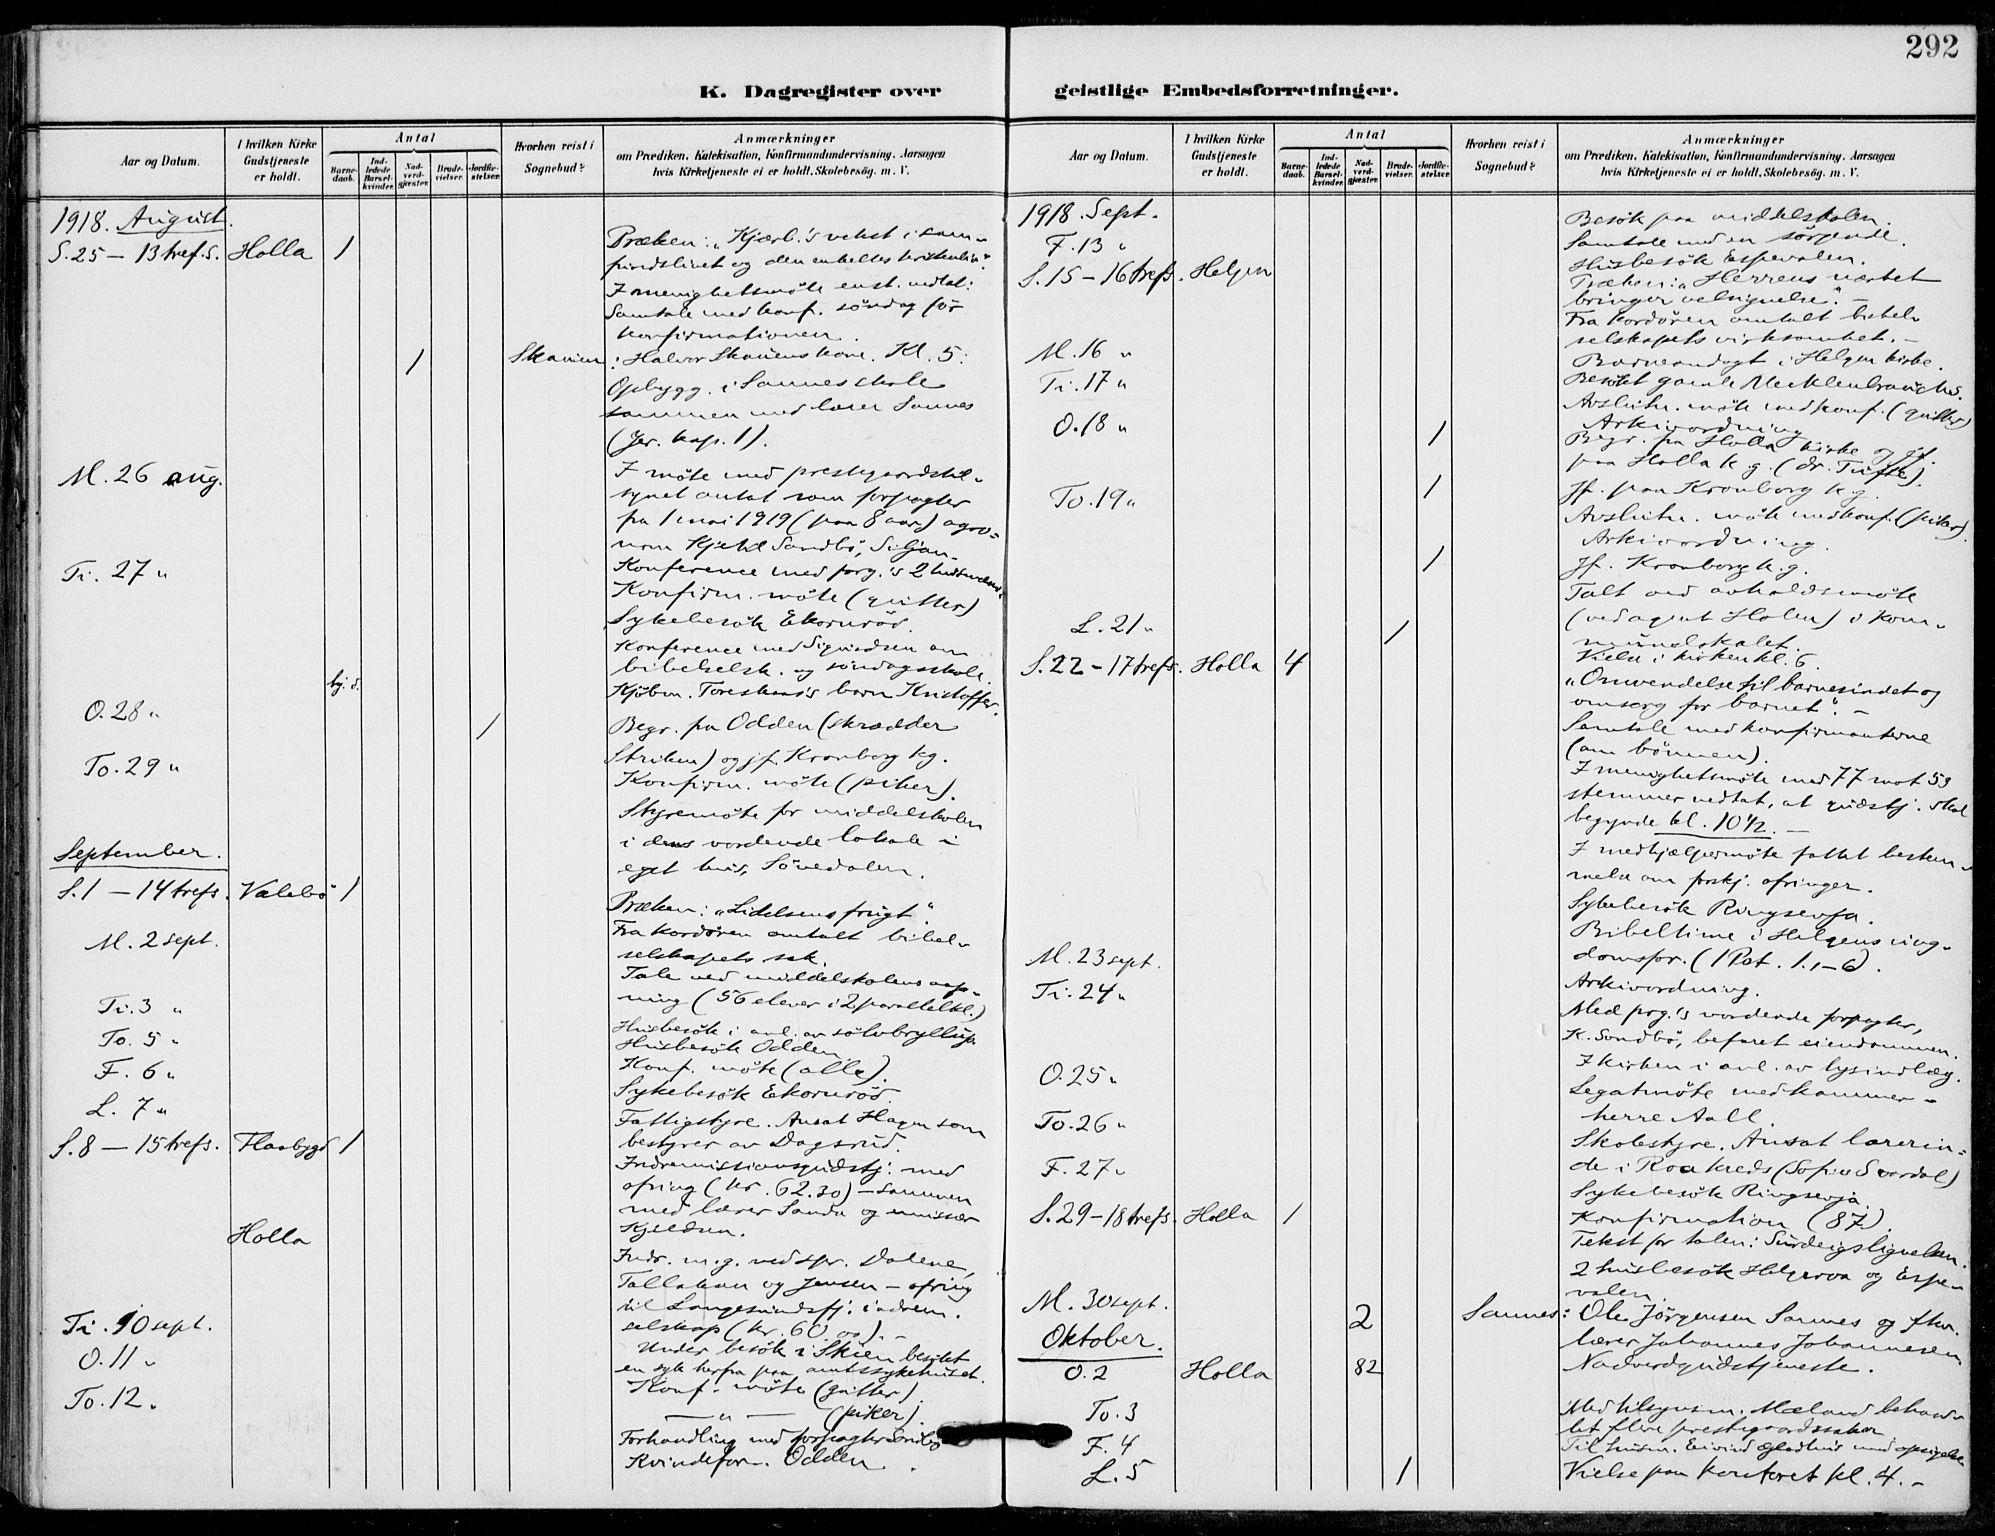 292
K. Dagregister over geistlige Embedsforretninger.
Aar og Datum.
I hvilken Kirke Gudstjeneste er holdt.
Antal
Barne-daab.
Ind-ledede Barsel-kvinder.
Nad-verd-gjæster.
Brude-vielser.
Jordfæ-stelser.
Hvorhen reist i Sognebud?
Anmærkninger
om Prædiken, Katekisation, Konfirmandundervisning, Aarsagen
hvis Kirketjeneste ei er holdt, Skolebesøg. m. V.
1918. August.
S. 25 – 13 tref. s. Holla 1
Præken: „Kjærl.'s vekst i sam-
fundslivet og den enkeltes
I menighetsmöte enst. vedtat:
Samtale med konf. söndag för
konfirmationen.
1 Skauen: Halvor Skauens kone. Kl. 5:
Opbygg. i Sannes skole
sammen med lærer Sannes
(Jer. kap. 1).
M. 26 aug.
I möte med prestegaardstil-
synet antat som forpagter
fra 1 mai 1919 (paa 8 aar) agro-
nom Kjetil Sandbö, Siljan.
Ti. 27 „
Konference med prg.'s 2 husmænd.
Konfirm. möte (gutter)
Sykebesök Ekornröd.
Konference med Sigurdsen om
bibelselsk. og söndagsskole.
hj. d.
Kjöbm. barn Kristoffer.
O. 28 „ 1
Begr. fra Odden (skrædder
Striken) og jf. Kronborg kg.
To. 29 „
Konfirm. möte (piker).
Styremöte for middelskolen
i dens vordende lokale i
eget hus, Sövedalen.
September.
S. 1 – 14 trefs. Valebö 1
Præken: „Lidelsens frugt“.
Fra kordören omtalt bibel-
selskapets sak.
M. 2 sept.
Tale ved middelskolens aap-
ning (56 elever i 2 parallelkl.)
Ti. 3 „
Husbesök i anl. av sölvbryllup.
To. 5 „
Husbesök Odden.
F. 6 „
Konf. möte (alle).
Sykebesök Ekornröd.
L. 7 „
Fattigstyre. Ansat Hagen som
bestyrer av Dagsrud.
S. 8 – 15 trefs. Flaabygd 1
Indremissionsgudstj. med
ofring (kr. 62.30) – sammen
med lærer Sanda og emissær
Kjeldsen.
Holla
Indr. m. g. ved spr. Dalene,
Tallaksen og Jensen – ofring
til Langesundsfj. indrem.
selskap (kr. 60.00). –
Ti. 10 sept.
Under besök i Skien besökt
en syk herfra paa amtssykehuset.
O. 11 „
Konf. möte (gutter)
To. 12 „
— „ — (piker).
Forhandling med forpagter Sandbö
Kvindefor. Odden.
Aar og Datum.
I hvilken Kirke Gudstjeneste er holdt.
Antal
Barne-daab.
Ind-ledede Barsel-kvinder.
Nad-verd-gjæster.
Brude-vielser.
Jordfæ-stelser.
Hvorhen reist i Sognebud?
Anmærkninger
om Prædiken, Katekisation, Konfirmandundervisning, Aarsagen
hvis Kirketjeneste ei er holdt, Skolebesøg. m. V.
1918. Sept.
Besök paa middelskolen.
F. 13 „
Samtale med en sörgende.
Husbesök Espevalen.
S. 15 – 16 trefs. Helgen
Præken: „Herrens nærhet
bringer velsignelse“. –
Fra kordören omtalt bibel-
selskapets virksomhet. –
M. 16 „
Barneandagt i Helgen kirke.
Ti. 17 „
Besökt gamle
Avslutn. möte med konf. (gutter)
Arkivordning
O. 18 „ 1
Begr. fra Holla kirke og jf.
paa Holla k.g. (dr. Tufte).
To. 19 „ 1
Jf. paa Kronborg k.g.
Avslutn. möte med konf. (piker).
Arkivordning.
1 Jf. Kronborg k.g.
Talt ved avholdsmöte
(ved agent Holen) i kom-
munelokalet.
L. 21 „ 1
Vielse i kirken kl. 6.
S. 22 – 17 trefs. Holla 4
„Omvendelse til barnesindet og
omsorg for barnet“. –
Samtale med konfirmanterne
(om bönnen).
I menighetsmöte med 77 mot 53
stemmer vedtat, at gudstj. skal
begynde kl. 10½. –
I medhjælpermöte fattet bestem-
melse om forskj. ofringer.
Sykebesök Ringsevja.
Bibeltime i Helgens ung-
domsfor. (1 Pet. 1, 1–6).
M. 23 sept.
Arkivordning.
Ti. 24 „
Med prg.'s vordende forpagter,
K. Sandbö, befaret eiendommen.
I kirken i anl. av lysindlæg.
O. 25 „
Legatmöte med kammer-
herre Aall.
To. 26 „
Skolestyre. Ansat lærerin-
de i Roa kreds (Sofie Svordal)
F. 27 „
Sykebesök Ringsevja
S. 29 – 18 trefs. Holla 1
Konfirmation (87).
Tekst for talen: Surdeigslignelsen.
2 husbesök Helgeroa og Espe-
valen.
M. 30 sept. 2 Sannes: Ole Jörgensen Sannes og fhv.
lærer Johannes Johannesen.
Oktober.
O. 2 Holla 82
Nadverdgudstjeneste.
To. 3
Med tilsynsm. Mæland behand-
let flere prestegaardssaker
F. 4
Til husm. Eivind med opsigelse
L. 5 1
Vielse paa kontoret kl. 4. –